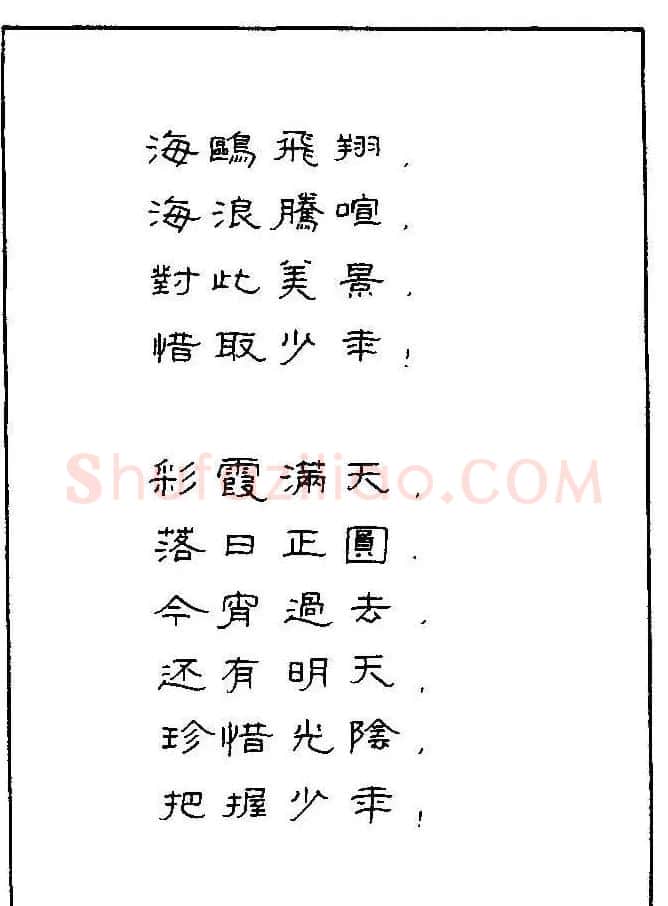 海鷗飛翔，
海浪騰喧，
對此美景，
惜取少年！
彩霞满天，
落日正圓．
今宵過去，
还有明天，
珍惜光陰，
把握少年！
Shufaziliao.COM